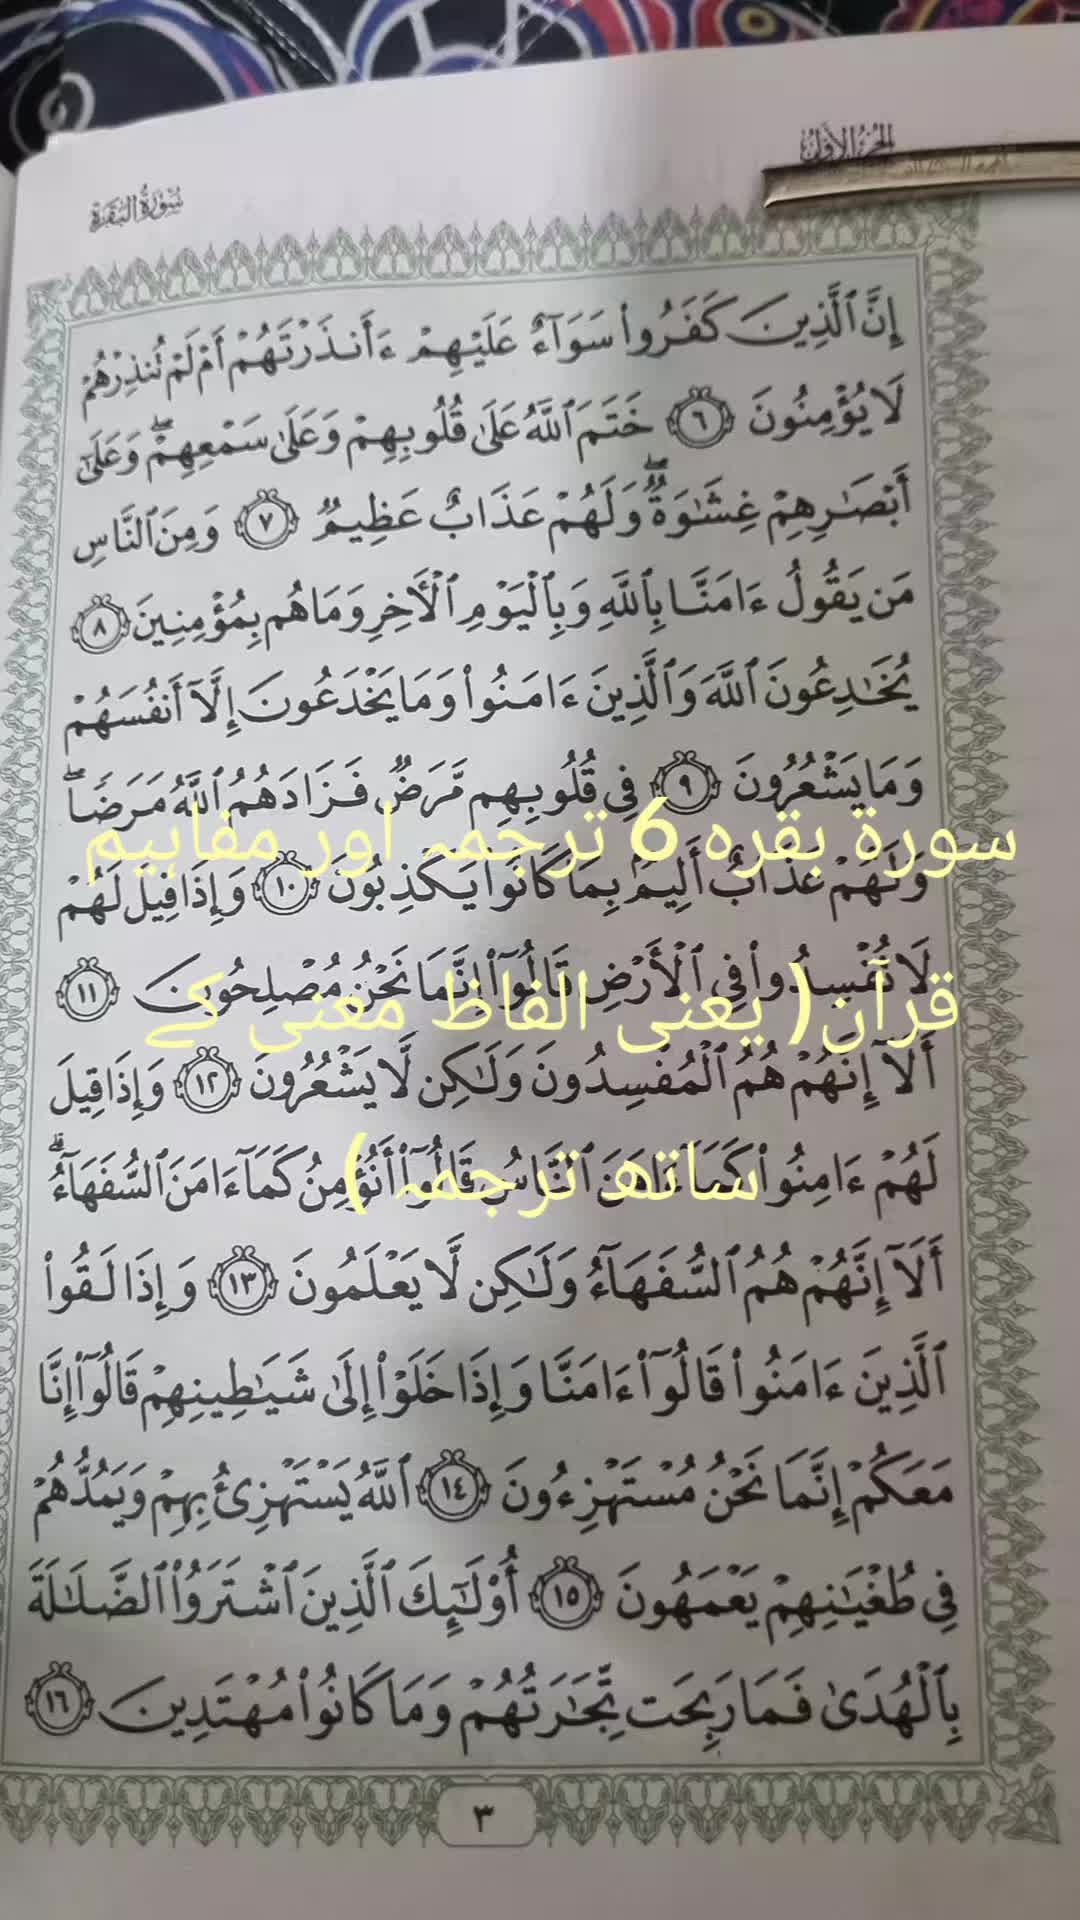 الجزء الأول
سورة البقرة
إِنَّ ٱلَّذِينَ كَفَرُوا۟ سَوَآءٌ عَلَيْهِمْ ءَأَنذَرْتَهُمْ أَمْ لَمْ تُنذِرْهُمْ
لَا يُؤْمِنُونَ ٦ خَتَمَ ٱللَّهُ عَلَىٰ قُلُوبِهِمْ وَعَلَىٰ سَمْعِهِمْ ۖ وَعَلَىٰٓ
أَبْصَٰرِهِمْ غِشَٰوَةٌ ۖ وَلَهُمْ عَذَابٌ عَظِيمٌ ٧ وَمِنَ ٱلنَّاسِ
مَن يَقُولُ ءَامَنَّا بِٱللَّهِ وَبِٱلْيَوْمِ ٱلْأَخِرِ وَمَا هُم بِمُؤْمِنِينَ ٨
يُخَٰدِعُونَ ٱللَّهَ وَٱلَّذِينَ ءَامَنُوا۟ وَمَا يَخْدَعُونَ إِلَّآ أَنفُسَهُمْ
وَمَا يَشْعُرُونَ ٩ فِى قُلُوبِهِم مَّرَضٌ فَزَادَهُمُ ٱللَّهُ مَرَضًا ۖ
سورۃ بقرہ 6 ترجمہ اور مفاہیم
وَلَهُمْ عَذَابٌ أَلِيمٌۢ بِمَا كَانُوا۟ يَكْذِبُونَ ١٠ وَإِذَا قِيلَ لَهُمْ
لَا تُفْسِدُوا۟ فِى ٱلْأَرْضِ قَالُوٓا۟ إِنَّمَا نَحْنُ مُصْلِحُونَ ١١
قرآن( یعنی الفاظ معنی کے
أَلَآ إِنَّهُمْ هُمُ ٱلْمُفْسِدُونَ وَلَٰكِن لَّا يَشْعُرُونَ ١٢ وَإِذَا قِيلَ
لَهُمْ ءَامِنُوا۟ كَمَآ ءَامَنَ ٱلنَّاسُ قَالُوٓا۟ أَنُؤْمِنُ كَمَآ ءَامَنَ ٱلسُّفَهَآءُ ۗ
ساتھ ترجمہ)
أَلَآ إِنَّهُمْ هُمُ ٱلسُّفَهَآءُ وَلَٰكِن لَّا يَعْلَمُونَ ١٣ وَإِذَا لَقُوا۟
ٱلَّذِينَ ءَامَنُوا۟ قَالُوٓا۟ ءَامَنَّا وَإِذَا خَلَوْا۟ إِلَىٰ شَيَٰطِينِهِمْ قَالُوٓا۟ إِنَّا
مَعَكُمْ إِنَّمَا نَحْنُ مُسْتَهْزِءُونَ ١٤ ٱللَّهُ يَسْتَهْزِئُ بِهِمْ وَيَمُدُّهُمْ
فِى طُغْيَٰنِهِمْ يَعْمَهُونَ ١٥ أُو۟لَٰٓئِكَ ٱلَّذِينَ ٱشْتَرَوُا۟ ٱلضَّلَٰلَةَ
بِٱلْهُدَىٰ فَمَا رَبِحَت تِّجَٰرَتُهُمْ وَمَا كَانُوا۟ مُهْتَدِينَ ١٦
٣